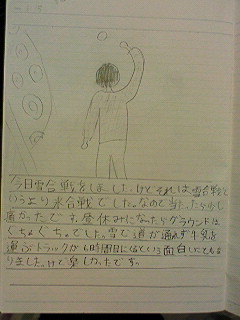 今日雪合戦をしました。けど それは雪合戦と
いうより氷合戦でした。なので当たったら少し
痛かったです。昼休みになったらグラウンドは
ぐちゃぐちゃでした。雪で道が通れず牛乳を
運ぶトラックが6時間目に
くるという面白いことも
りました。けど楽しかったです。